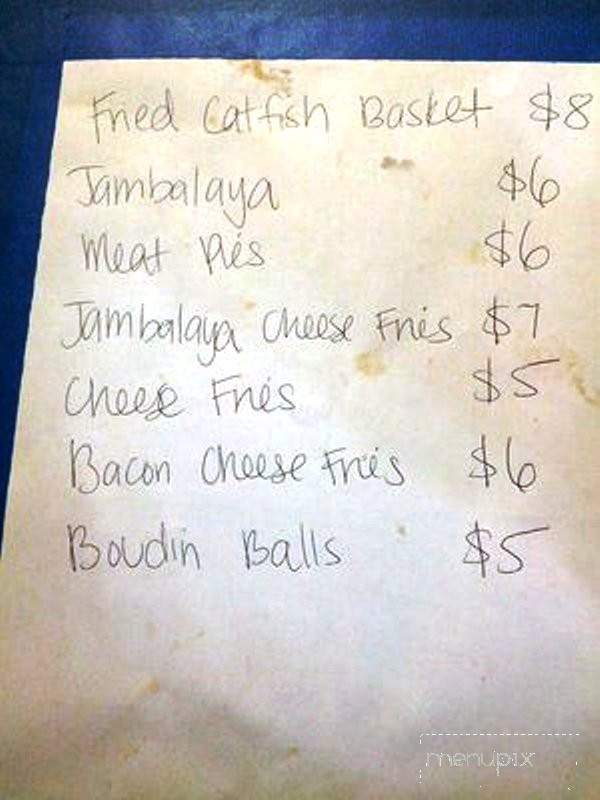 Fried Catfish Basket $8
Jambalaya $6
Meat Pies $6
Jambalaya Cheese Fries $7
Cheese Fries $5
Bacon Cheese Fries $6
Boudin Balls $5
menupix